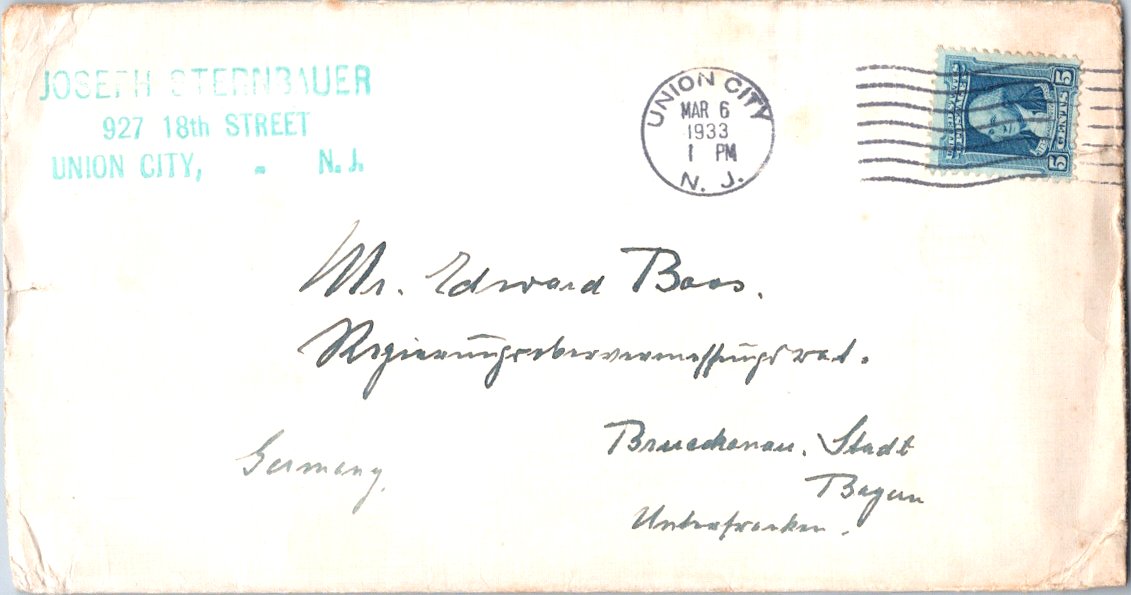 JOSEPH STERNBAUER
927 18th STREET
UNION CITY, - N. J.
UNION CITY
MAR 6
1933
1 PM
N. J.
5 CENTS 5
Mr. Edward Baas.
Regierungsobervermessungsrat.
Brueckenau, Stadt
Bayern
Unterfranken.
Germany.